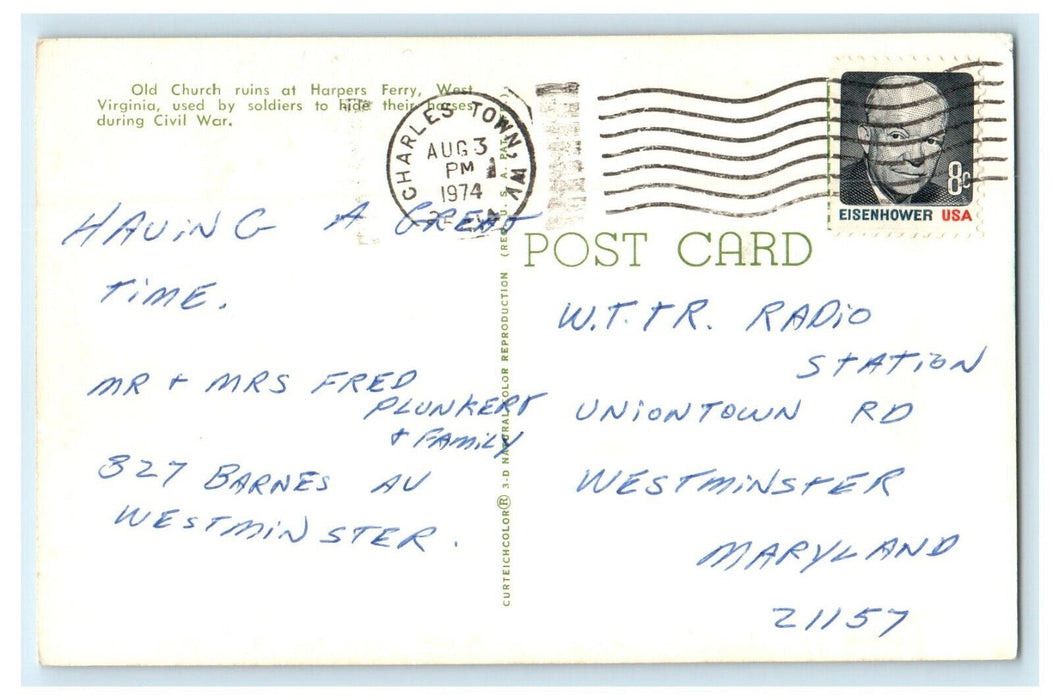 Old Church ruins at Harpers Ferry, West
Virginia, used by soldiers to hide their horses
during Civil War.
CHARLES TOWN, WV
AUG 3
PM
1974
8c
EISENHOWER USA
POST CARD
HAVING A GREAT
TIME.
MR + MRS FRED
PLUNKERT
+ FAMILY
327 BARNES AV
WESTMINSTER.
W.T.T.R. RADIO
STATION
UNIONTOWN RD
WESTMINSTER
MARYLAND
21157
CURTEICHCOLOR® 3-D NATURAL COLOR REPRODUCTION (REG. U.S.A. PAT.